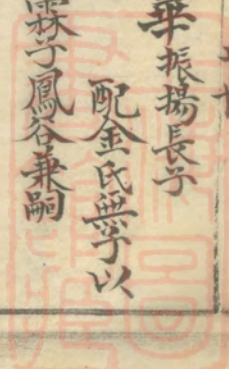 華振揚長子
配金氏無子以
霖子鳳谷兼嗣